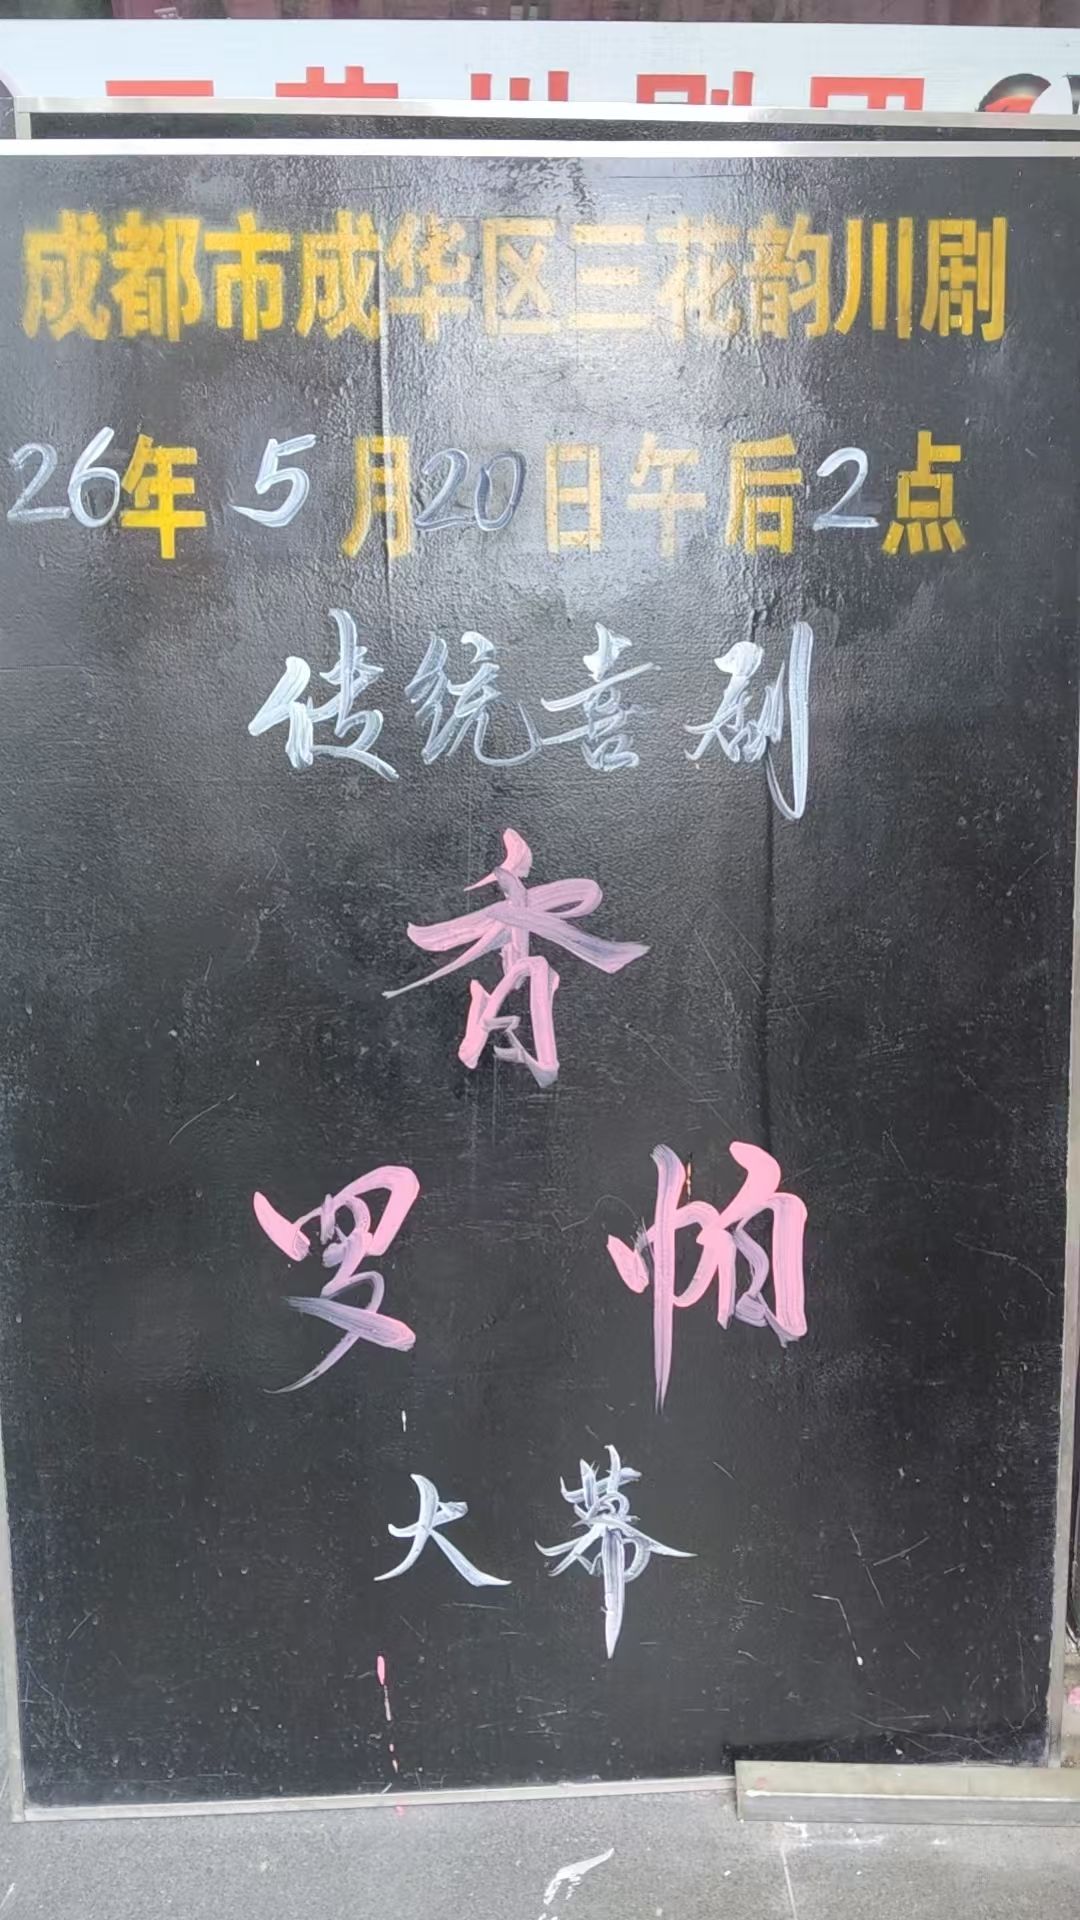 成都市成华区三花韵川剧
26年5月20日午后2点
传统喜剧
香
罗帕
大幕